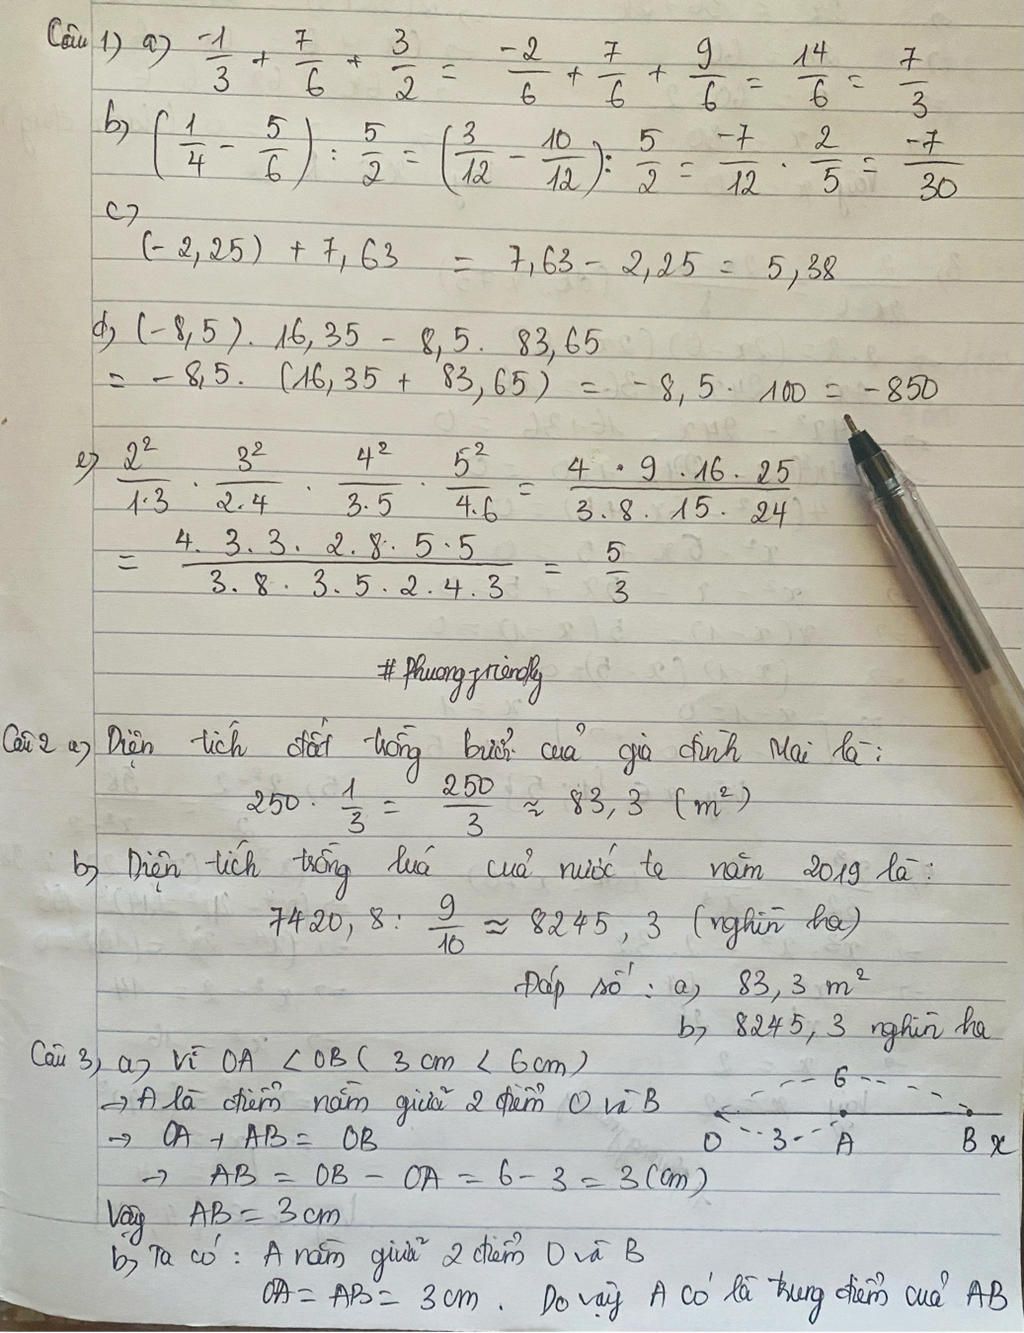 Câu 1) a) -1/3 + 7/6 + 3/2 = -2/6 + 7/6 + 9/6 = 14/6 = 7/3
b) (1/4 - 5/6) : 5/2 = (3/12 - 10/12) : 5/2 = -7/12 . 2/5 = -7/30
c)
(-2,25) + 7,63 = 7,63 - 2,25 = 5,38
d) (-8,5). 16,35 - 8,5. 83,65
= -8,5. (16,35 + 83,65) = -8,5. 100 = -850
e) 2²/1.3 . 3²/2.4 . 4²/3.5 . 5²/4.6 = 4.9.16.25/3.8.15.24
= 4.3.3.2.8.5.5/3.8.3.5.2.4.3 = 5/3
# Phuongfriendly
Câu 2 a) Diện tích đất trồng bưởi của gia đình Mai là:
250 . 1/3 = 250/3 ≈ 83,3 (m²)
b) Diện tích trồng luá cuả nước ta năm 2019 là:
7420,8 : 9/10 ≈ 8245,3 (nghìn ha)
Đáp số : a) 83,3 m²
b) 8245,3 nghìn ha
Câu 3, a) Vì OA < OB ( 3 cm < 6cm)
→ A là điểm nằm giữa 2 điểm O và B
→ OA + AB = OB
→ AB = OB - OA = 6 - 3 = 3 (cm)
Vậy AB = 3 cm
6
O 3 A B x
b) Ta có : A nằm giữa 2 điểm O và B
OA = AB = 3 cm . Do vậy A có là trung điểm cuả AB